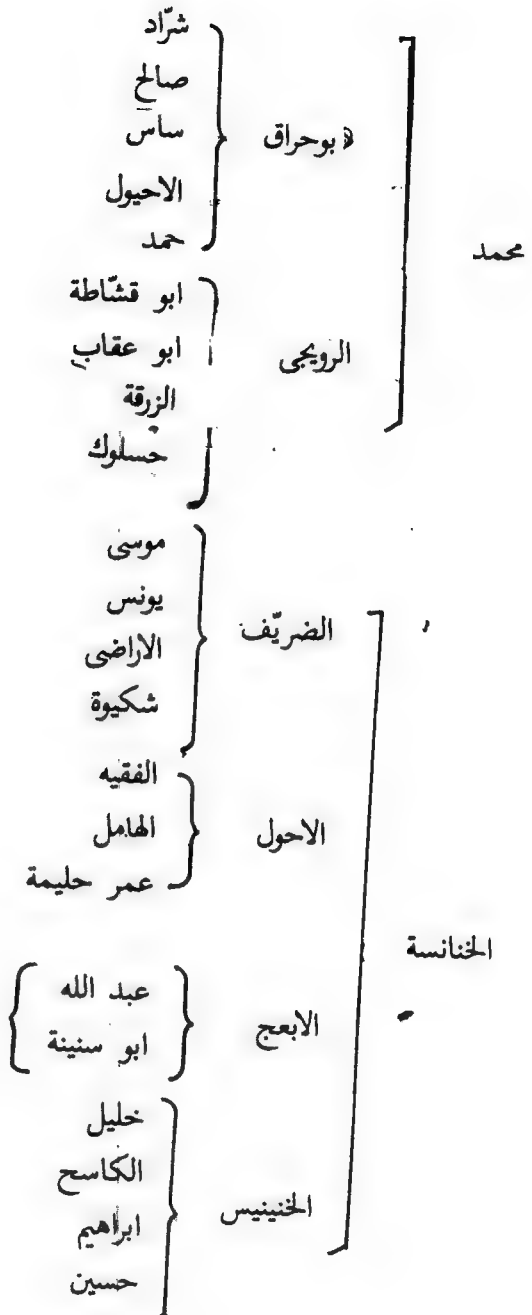 محمد
بوحراق
شرّاد
صالح
ساس
الاحيول
حمد
الرويجى
ابو قشّاطة
ابو عقاب
الزرقة
حسلوك
الخنانسة
الضريّف
موسى
يونس
الاراضى
شكيوة
الاحول
الفقيه
الهامل
عمر حليمة
الابعج
عبد الله
ابو سنينة
الخنينيس
خليل
الكاسح
ابراهيم
حسين